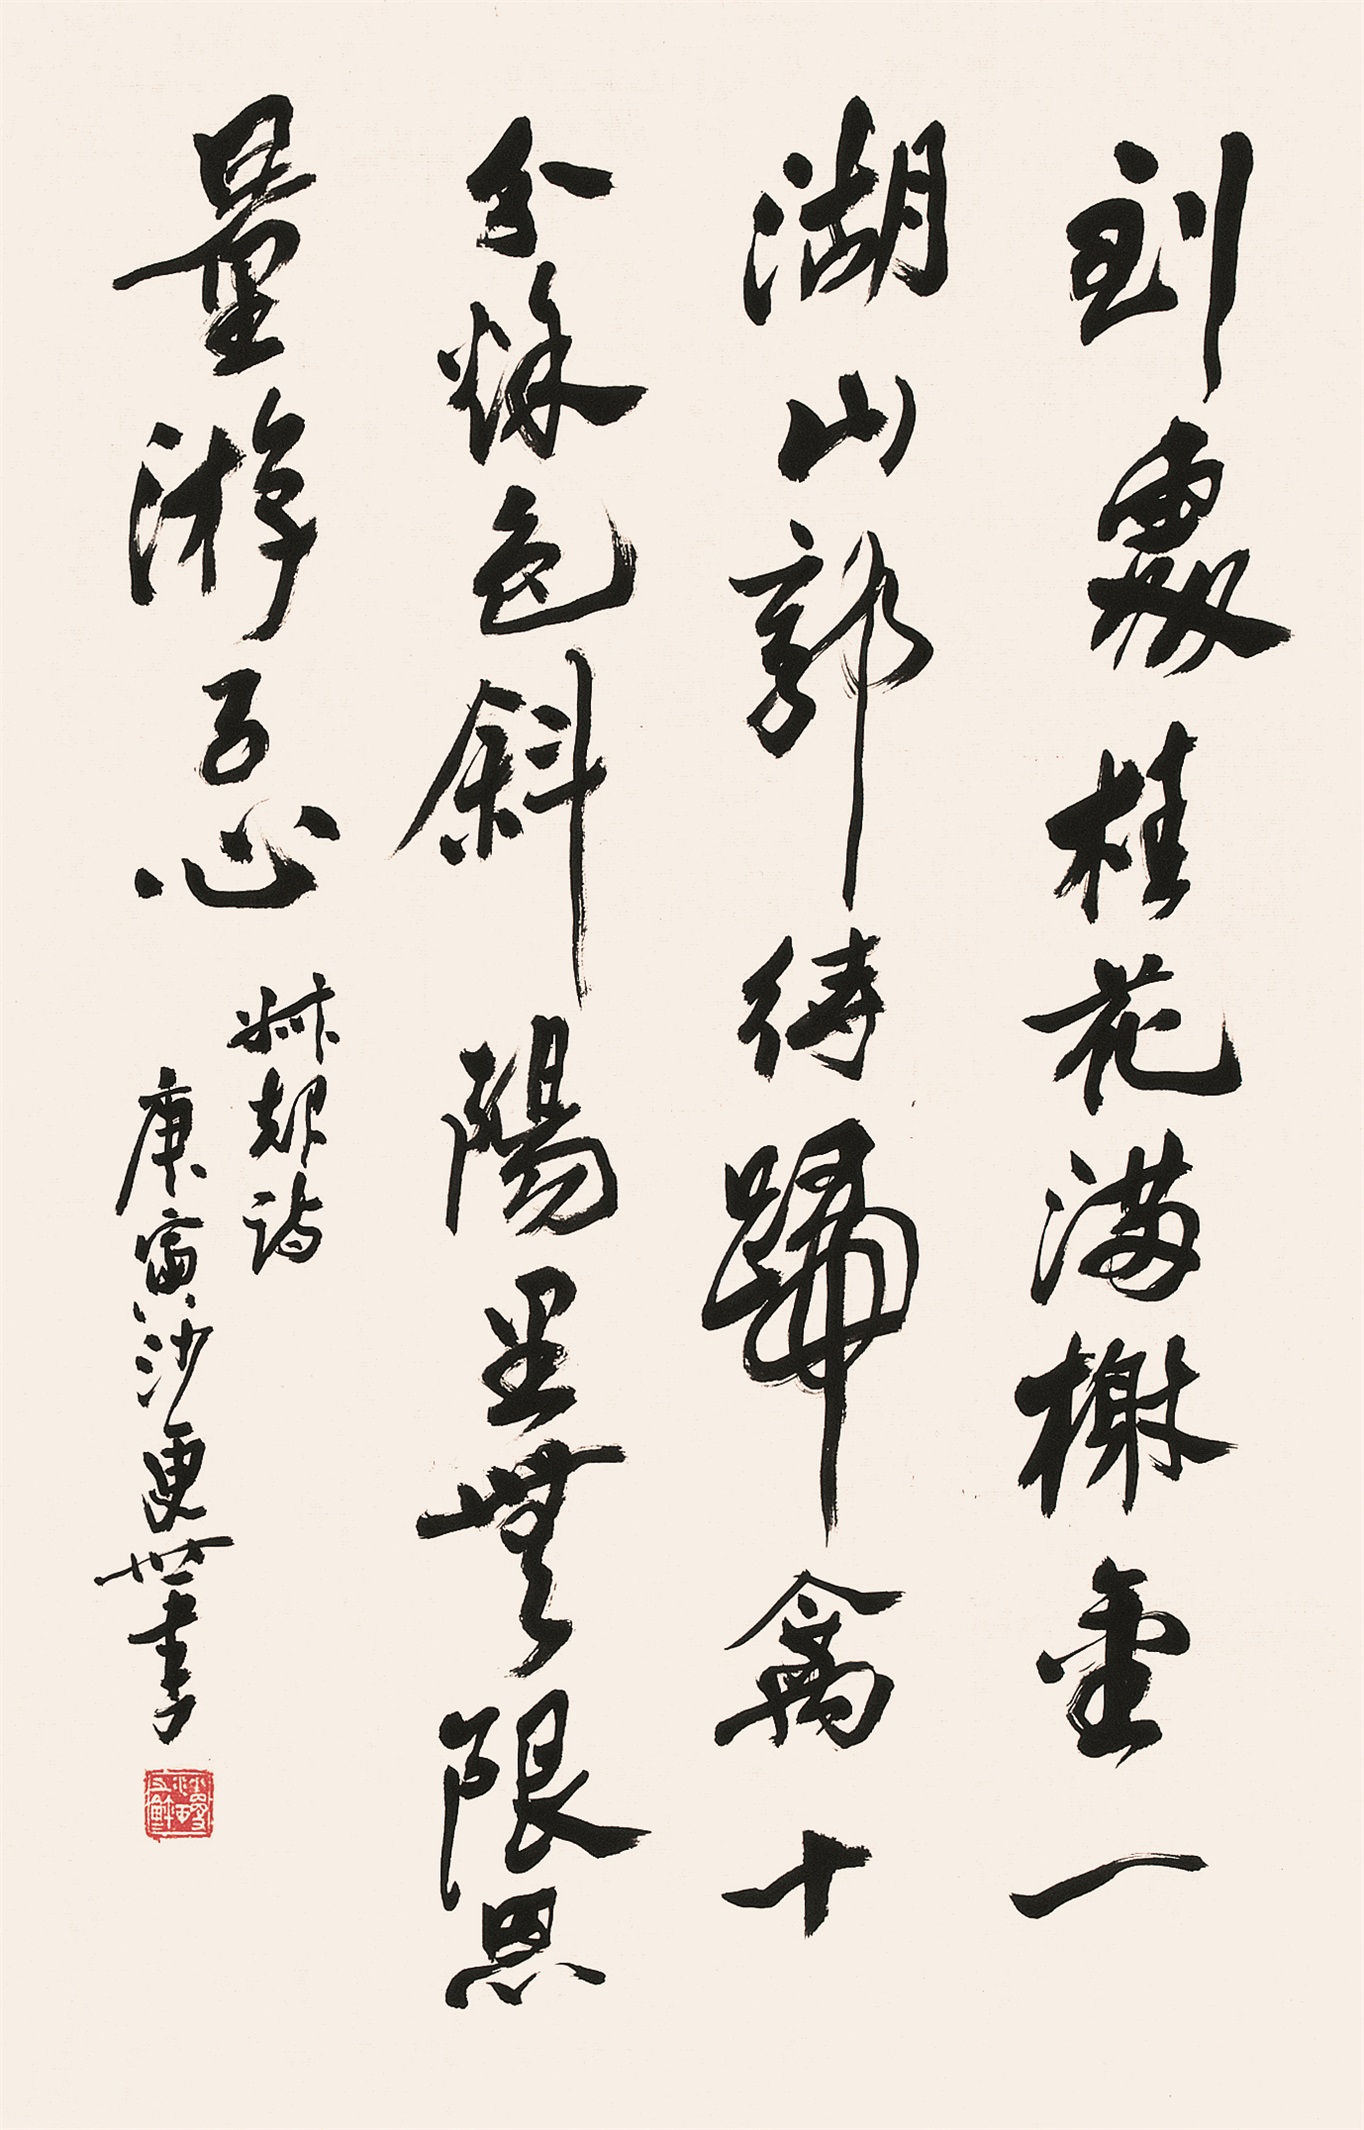 到處桂花滿榭金一
湖山郭待歸禽十
分秋色斜陽里無限思
量游子心
詩
庚寅沙更世書